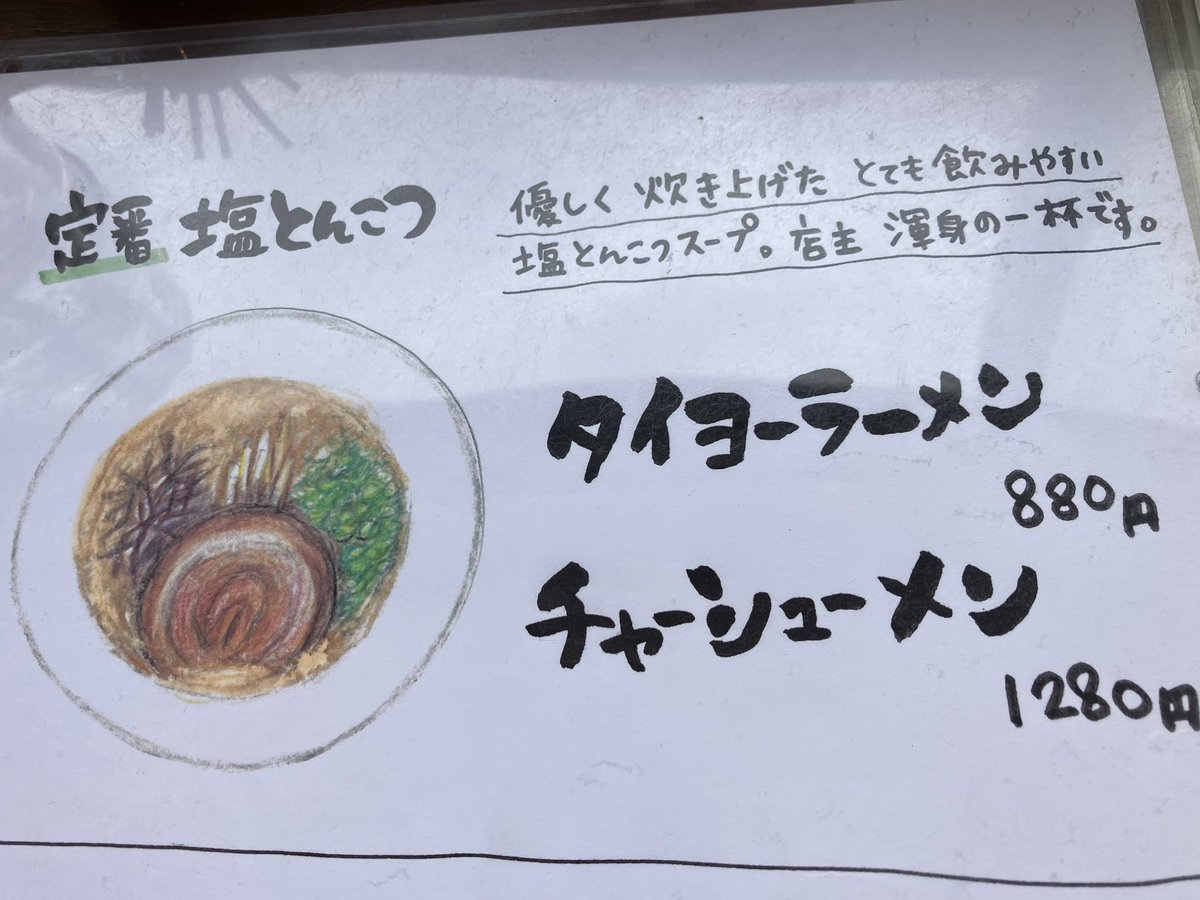 定番 塩とんこつ
優しく 炊き上げた とても飲みやすい
塩とんこつスープ。店主 渾身の一杯です。
タイヨーラーメン
880円
チャーシューメン
1280円